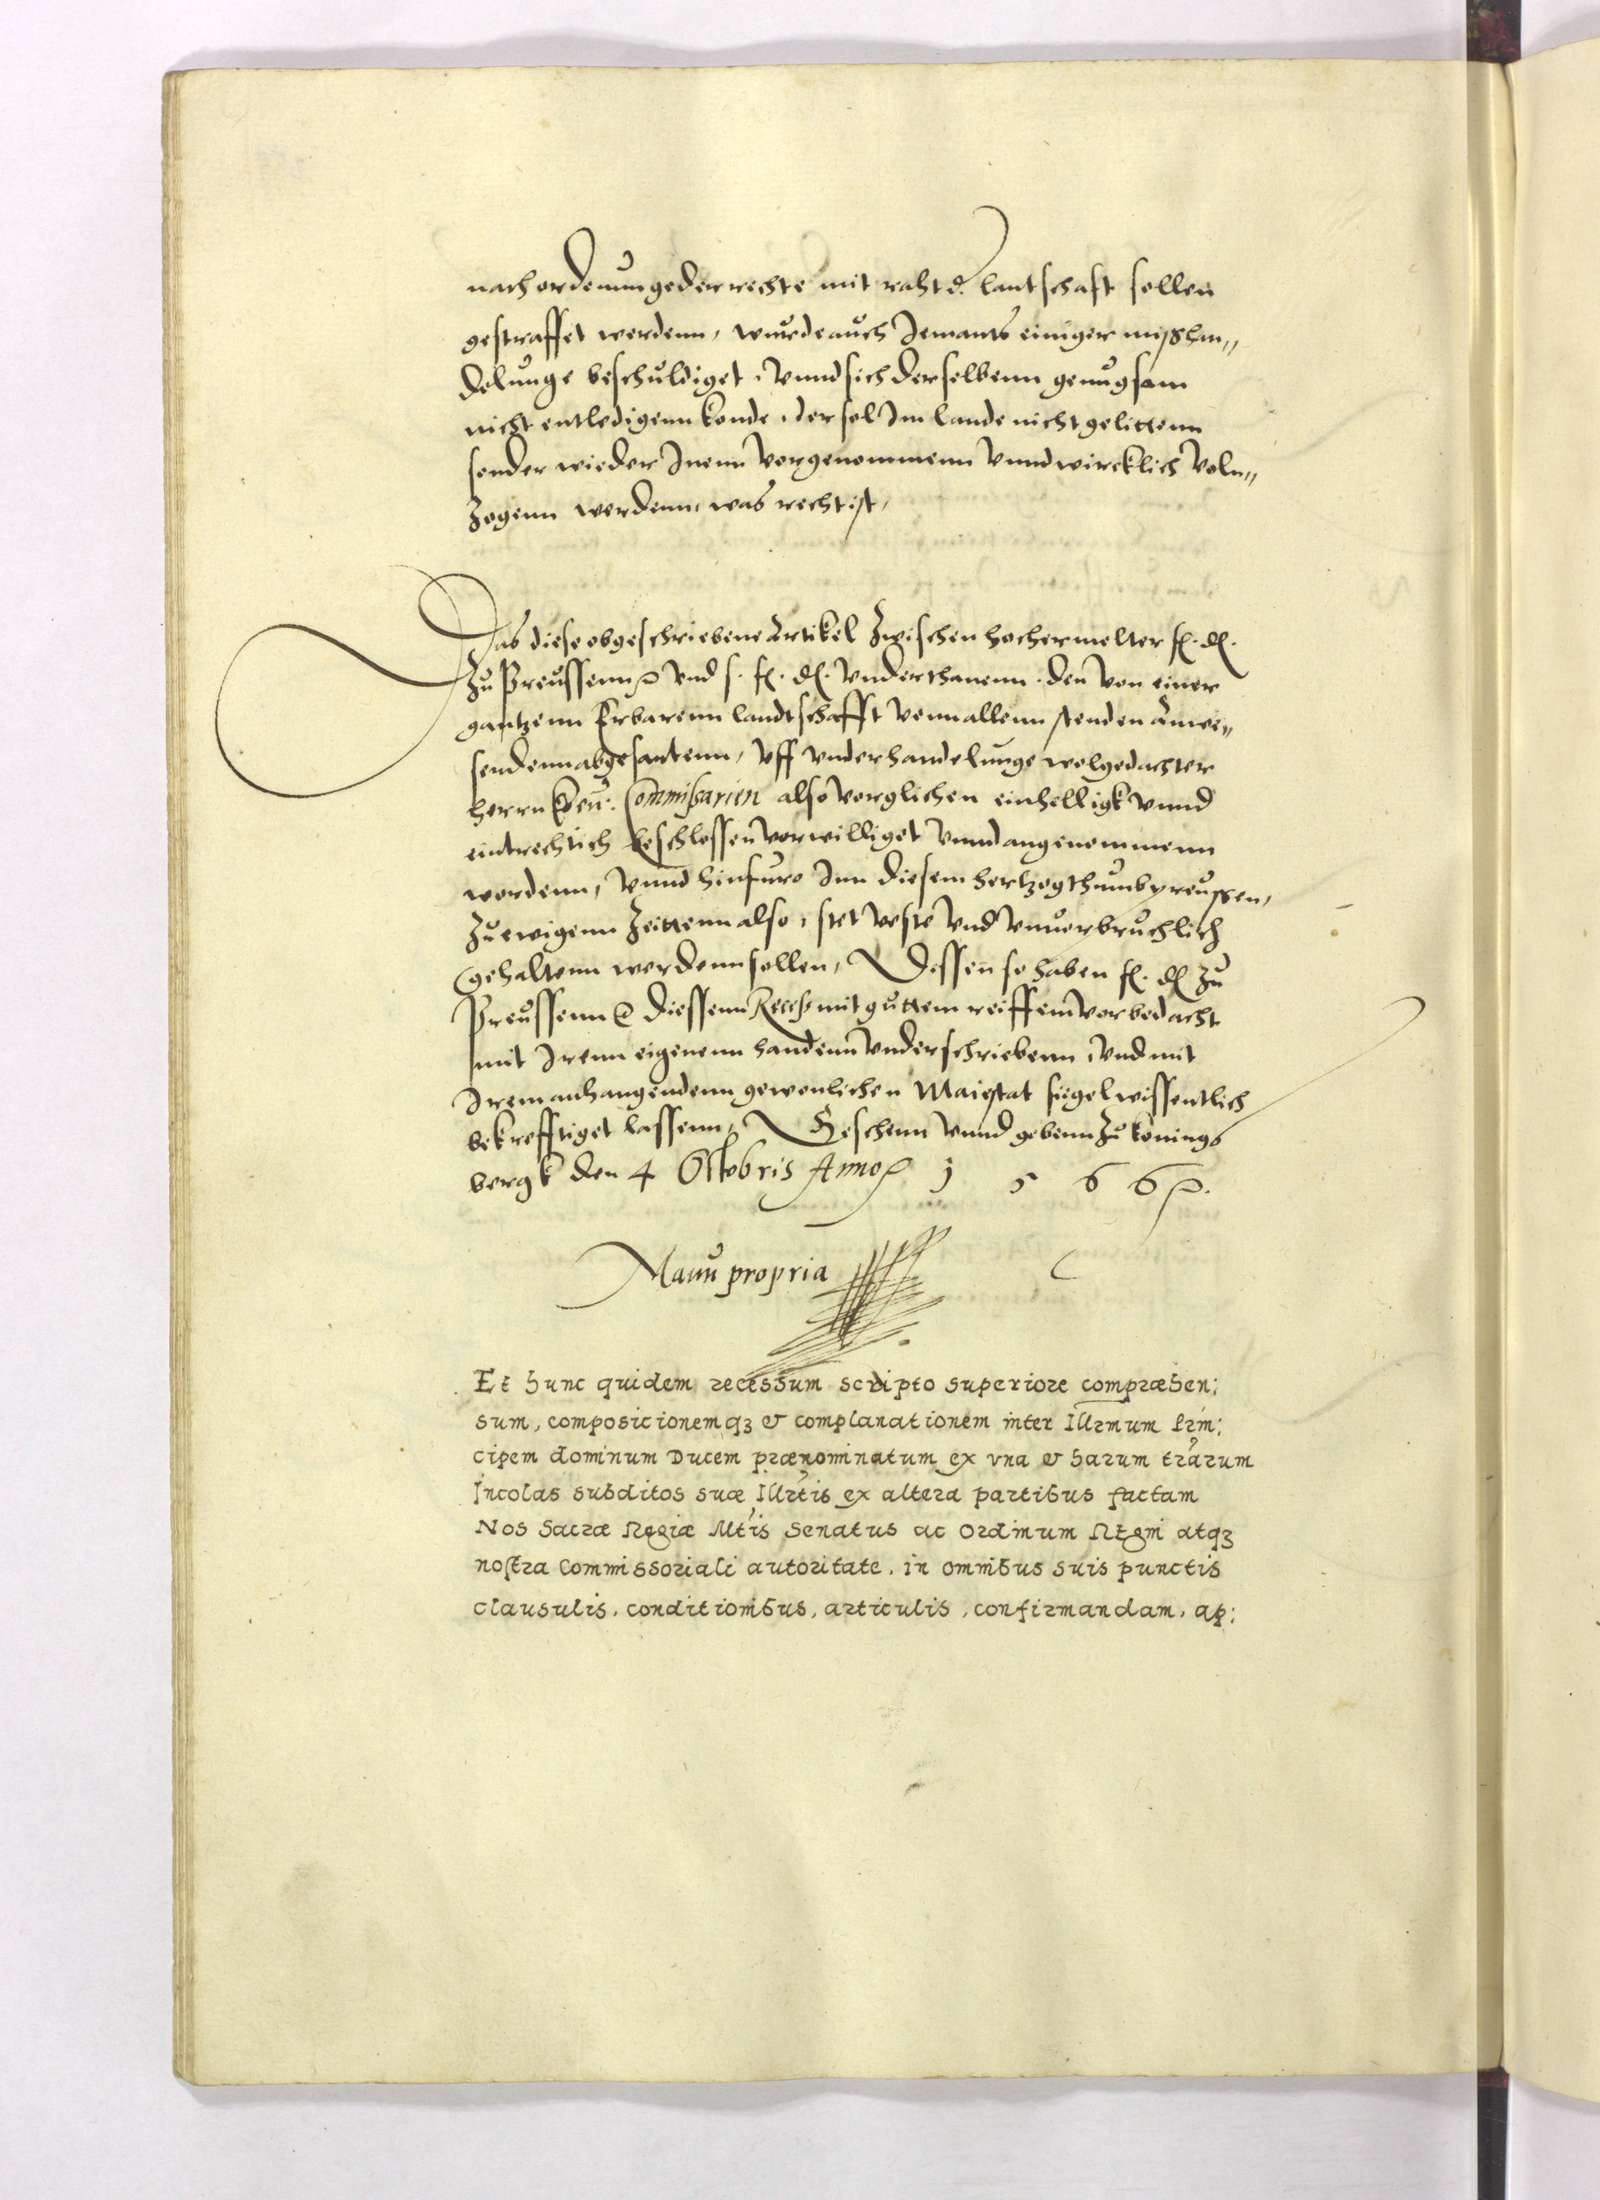 nach ordenunge der rechte mit raht d. lantschaft sollen
gestraffet werdenn, wurde auch Jemants einiger mißhan„
delunge beschuldiget, vnnd sich derselbenn genugsam
nicht entledigenn konde, der sol Im lande nicht gelittenn
sonder wieder Inenn vorgenommenn vnnd wircklich voln„
zogenn werdenn, was recht ist,
Das diese obgeschriebene Artikel zwischen hochermelter f. d.
zu Preussenn vnd s. f. d. vnderthanenn, den von einer
gantzenn Erbarenn landtschafft vonn allenn stenden Anwe„
sendenn abgesantenn, vff vnderhandelunge wolgedachter
herrn Commißarien also vorglichen einhelligk vnnd
eintrechtich beschlossen vorwilliget vnnd angenommenn
wordenn, vnnd hinfuro Inn diesem hertzogthumb preussen,
zu ewigenn zeittenn also, stet veste vnd vnuorbruchlich
gehaltenn werdenn sollen, Dessen so haben f. d. zu
Preussenn diessenn Receß mit guttem reiffem vorbedacht
mit Irenn eigenenn handenn vnderschriebenn, vnd mit
Irem anhangendenn gewonlichen Maiestat siegel wissentlich
bekrefftiget lassenn, Geschenn vnnd gebenn zu konings
bergk den 4 Octobris Anno 1 5 6 6
Manu propria
Et hunc quidem recessum scripto superiore compræhen:
sum, compositionemqꝫ & complanationem inter Illrmum Prin:
cipem dominum Ducem prænominatum ex vna & harum trarum
Incolas subditos suæ Illrtis ex altera partibus factam
Nos Sacræ Regiæ Mtis Senatus ac Ordinum Regni atqꝫ
nostra Commissoriali autoritate, in omnibus suis punctis
clausulis, conditionibus, articulis, confirmandam, ap: